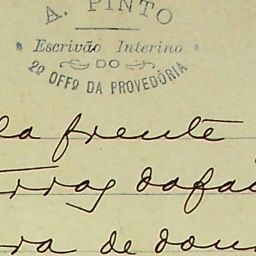 A. PINTO
Escrivão Interino
DO
2º OFFº DA PROVEDÓRIA
la frente
terras
ra de